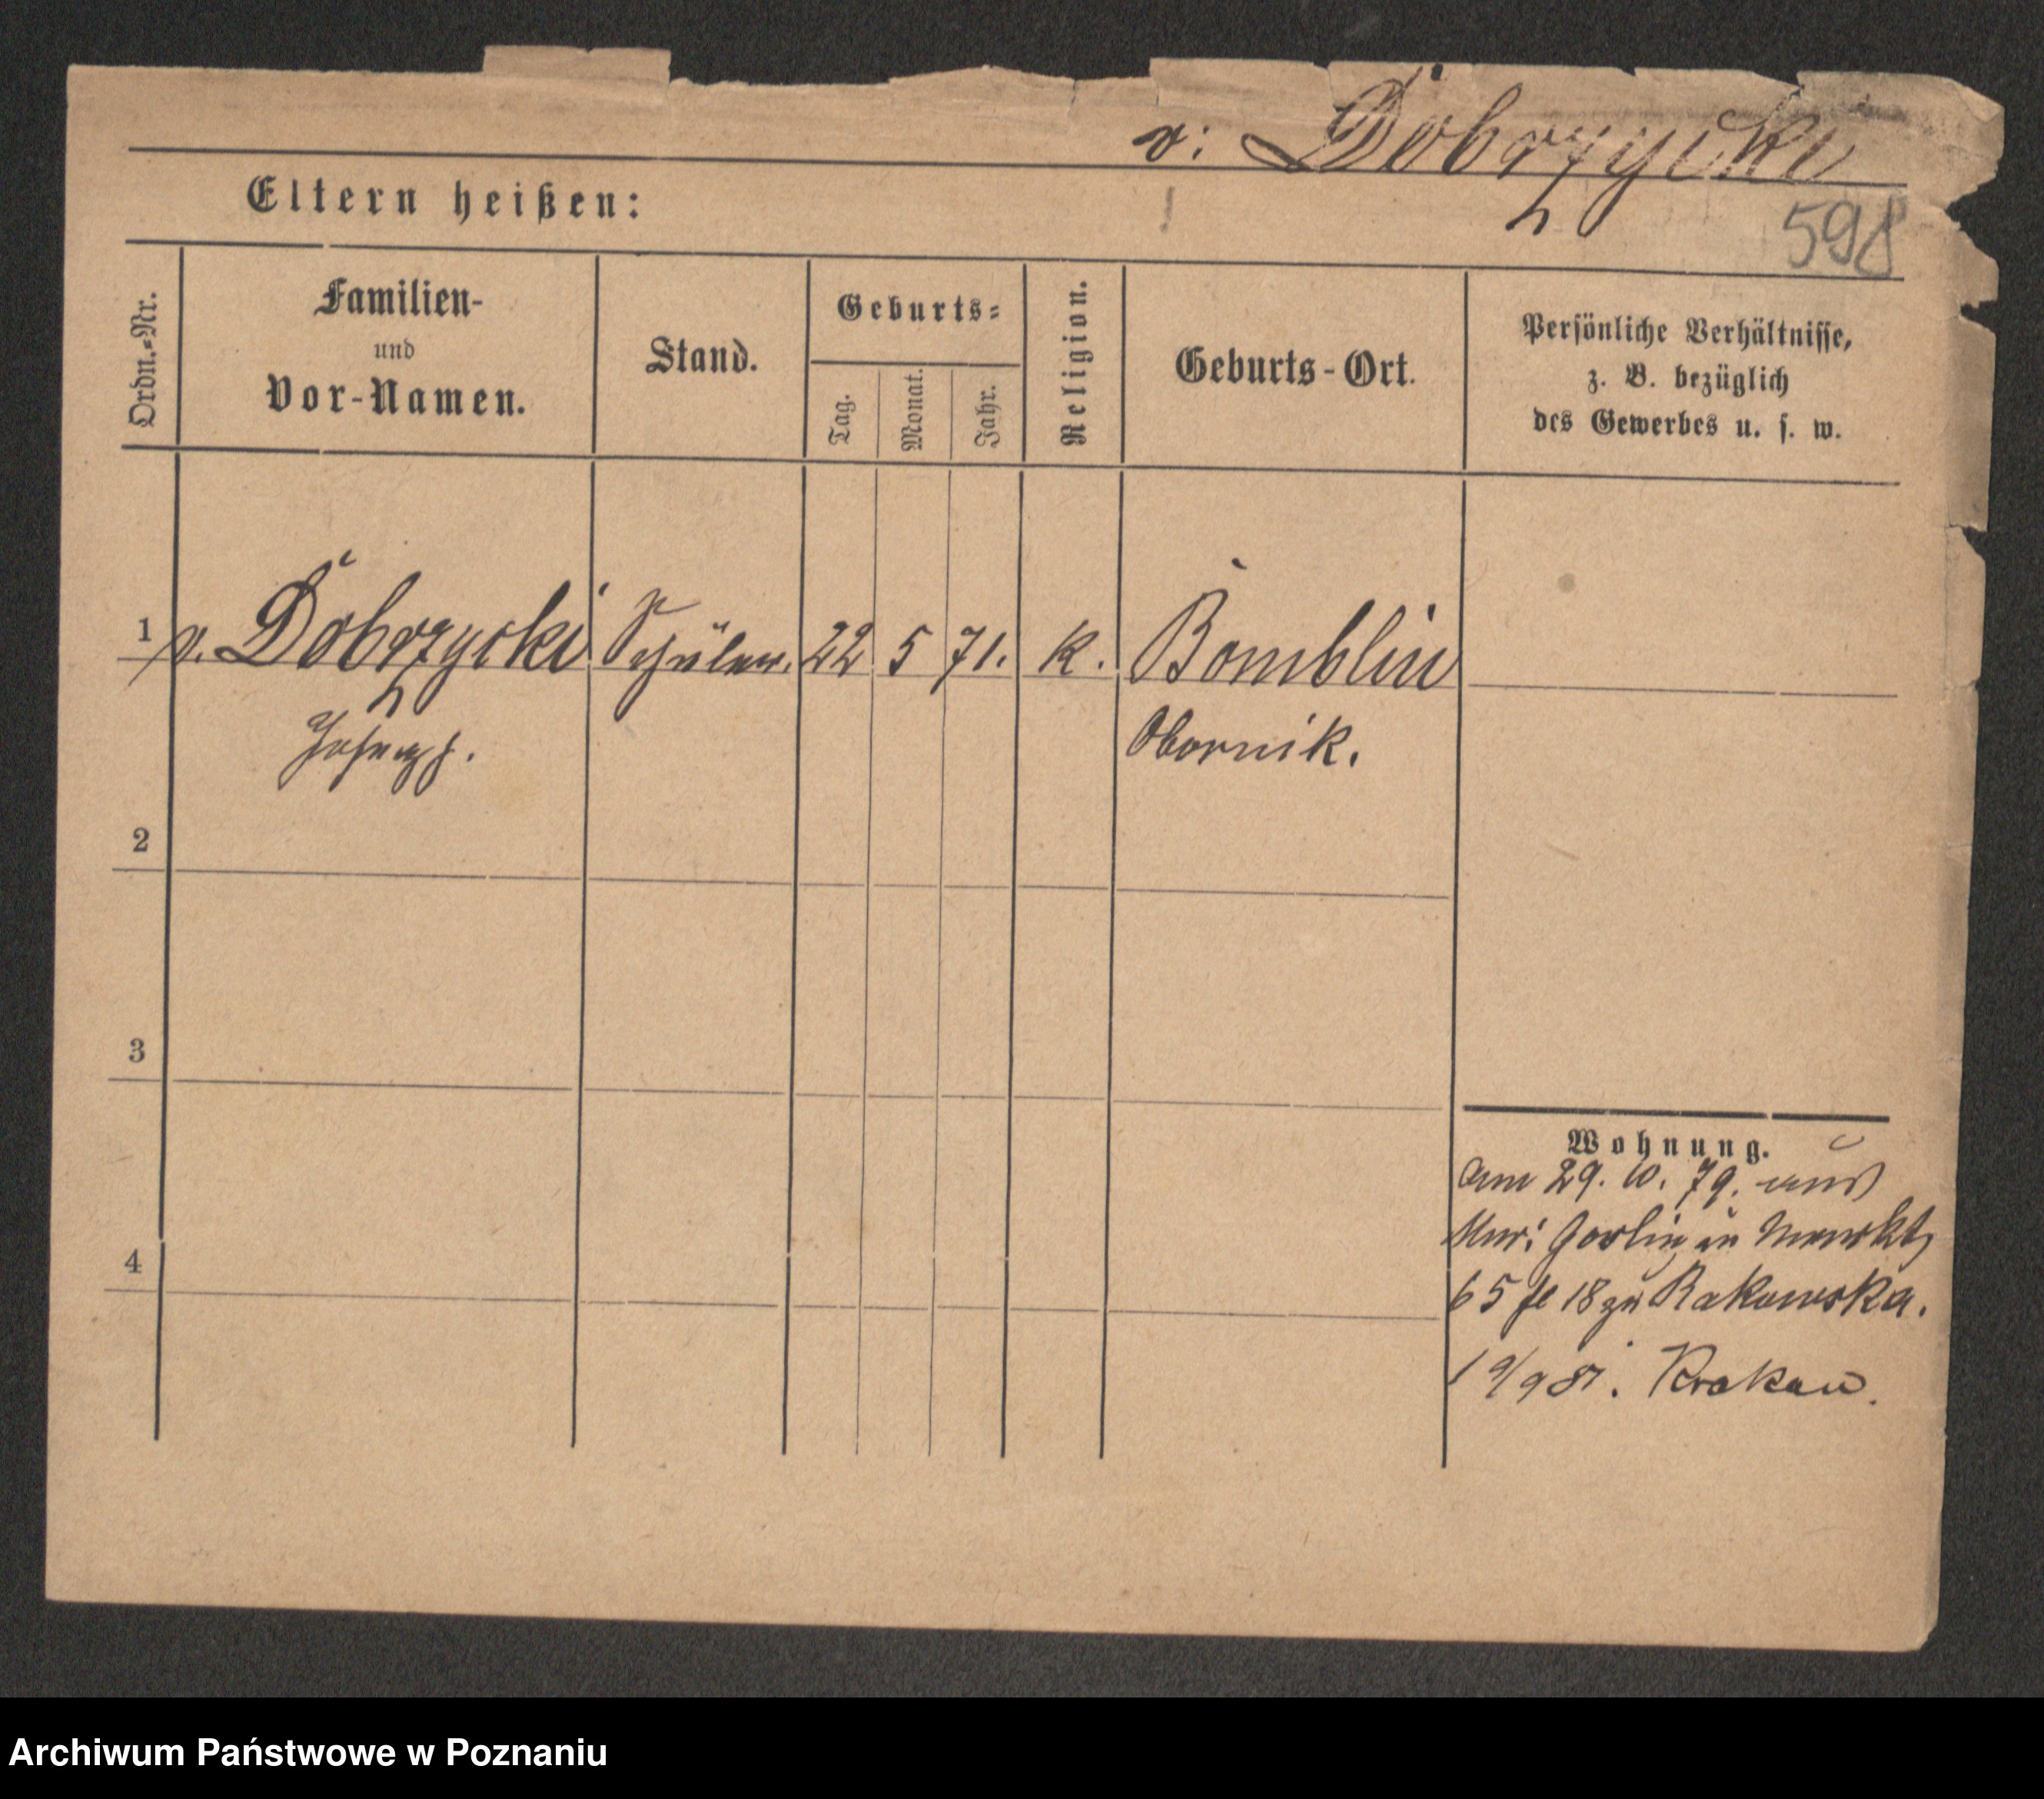 v: Dobrzycki
Eltern heißen:
598
Ordn.-Nr.
Familien-
und
Vor-Namen.
Stand.
Geburts-
Tag.
Monat.
Jahr.
Religion.
Geburts-Ort.
Persönliche Verhältnisse,
z. B. bezüglich
des Gewerbes u. s. w.
1 v. Dobrzycki Schüler. 22 5 71. K. Bomblin
Joseph. Obornik.
2
3
4
Wohnung.
am 29. 10. 79. aus
Mur: Goslin, Markt
65 fl 18 zu Rakowska.
1 9/9 81. Krakau.
Archiwum Państwowe w Poznaniu